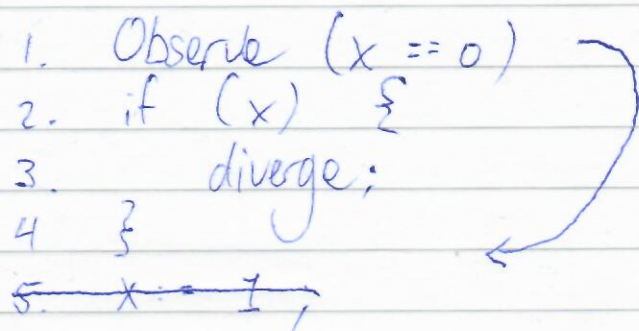 1. Observe (x == 0)
2. if (x) {
3. diverge;
4 }
5. x = 1;